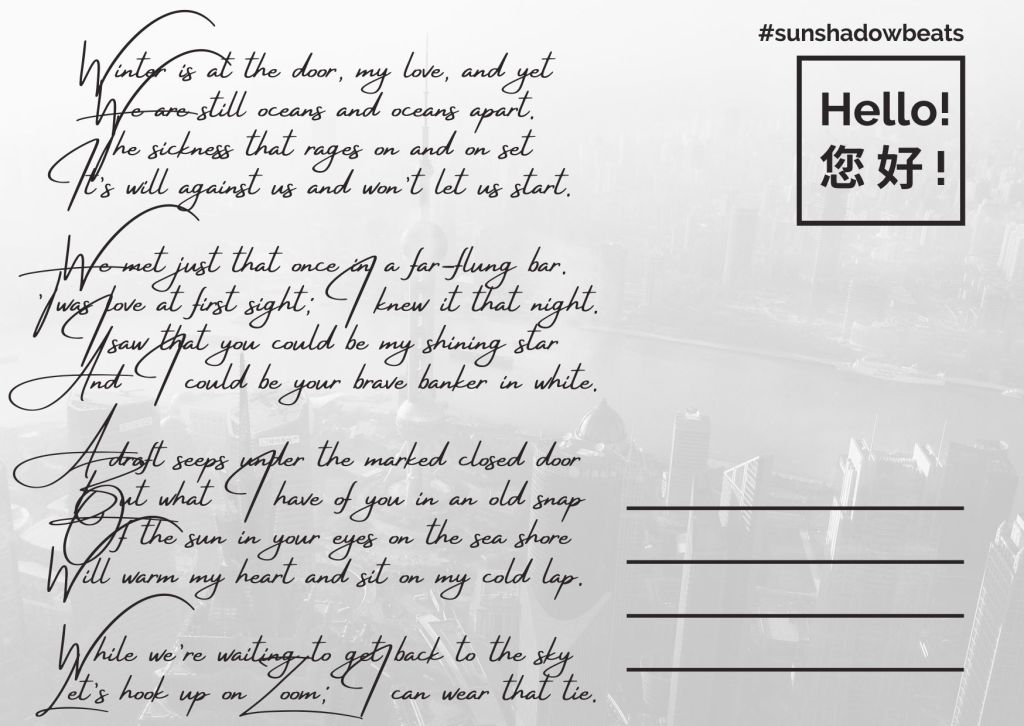 Winter is at the door, my love, and yet
We are still oceans and oceans apart.
The sickness that rages on and on set
It's will against us and won't let us start.
We met just that once in a far-flung bar.
'Twas love at first sight; I knew it that night.
I saw that you could be my shining star
And I could be your brave banker in white.
A draft seeps under the marked closed door
But what I have of you in an old snap
Of the sun in your eyes on the sea shore
Will warm my heart and sit on my cold lap.
While we're waiting to get back to the sky
Let's hook up on Zoom; I can wear that tie.
#sunshadowbeats
Hello!
您好!